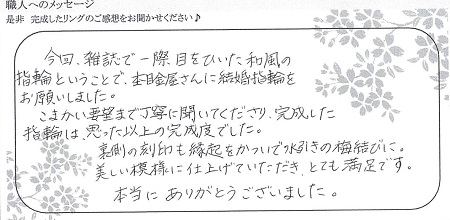 職人へのメッセージ
是非 完成したリングのご感想をお聞かせください♪
今回、雑誌で一際目をひいた和風の
指輪ということで、杢目金屋さんに結婚指輪を
お願いしました。
こまかい要望まで丁寧に聞いてくださり、完成した
指輪は、思った以上の完成度でした。
裏側の刻印も縁起をかついで水引きの梅結びに。
美しい模様に仕上げていただき、とても満足です。
本当にありがとうございました。